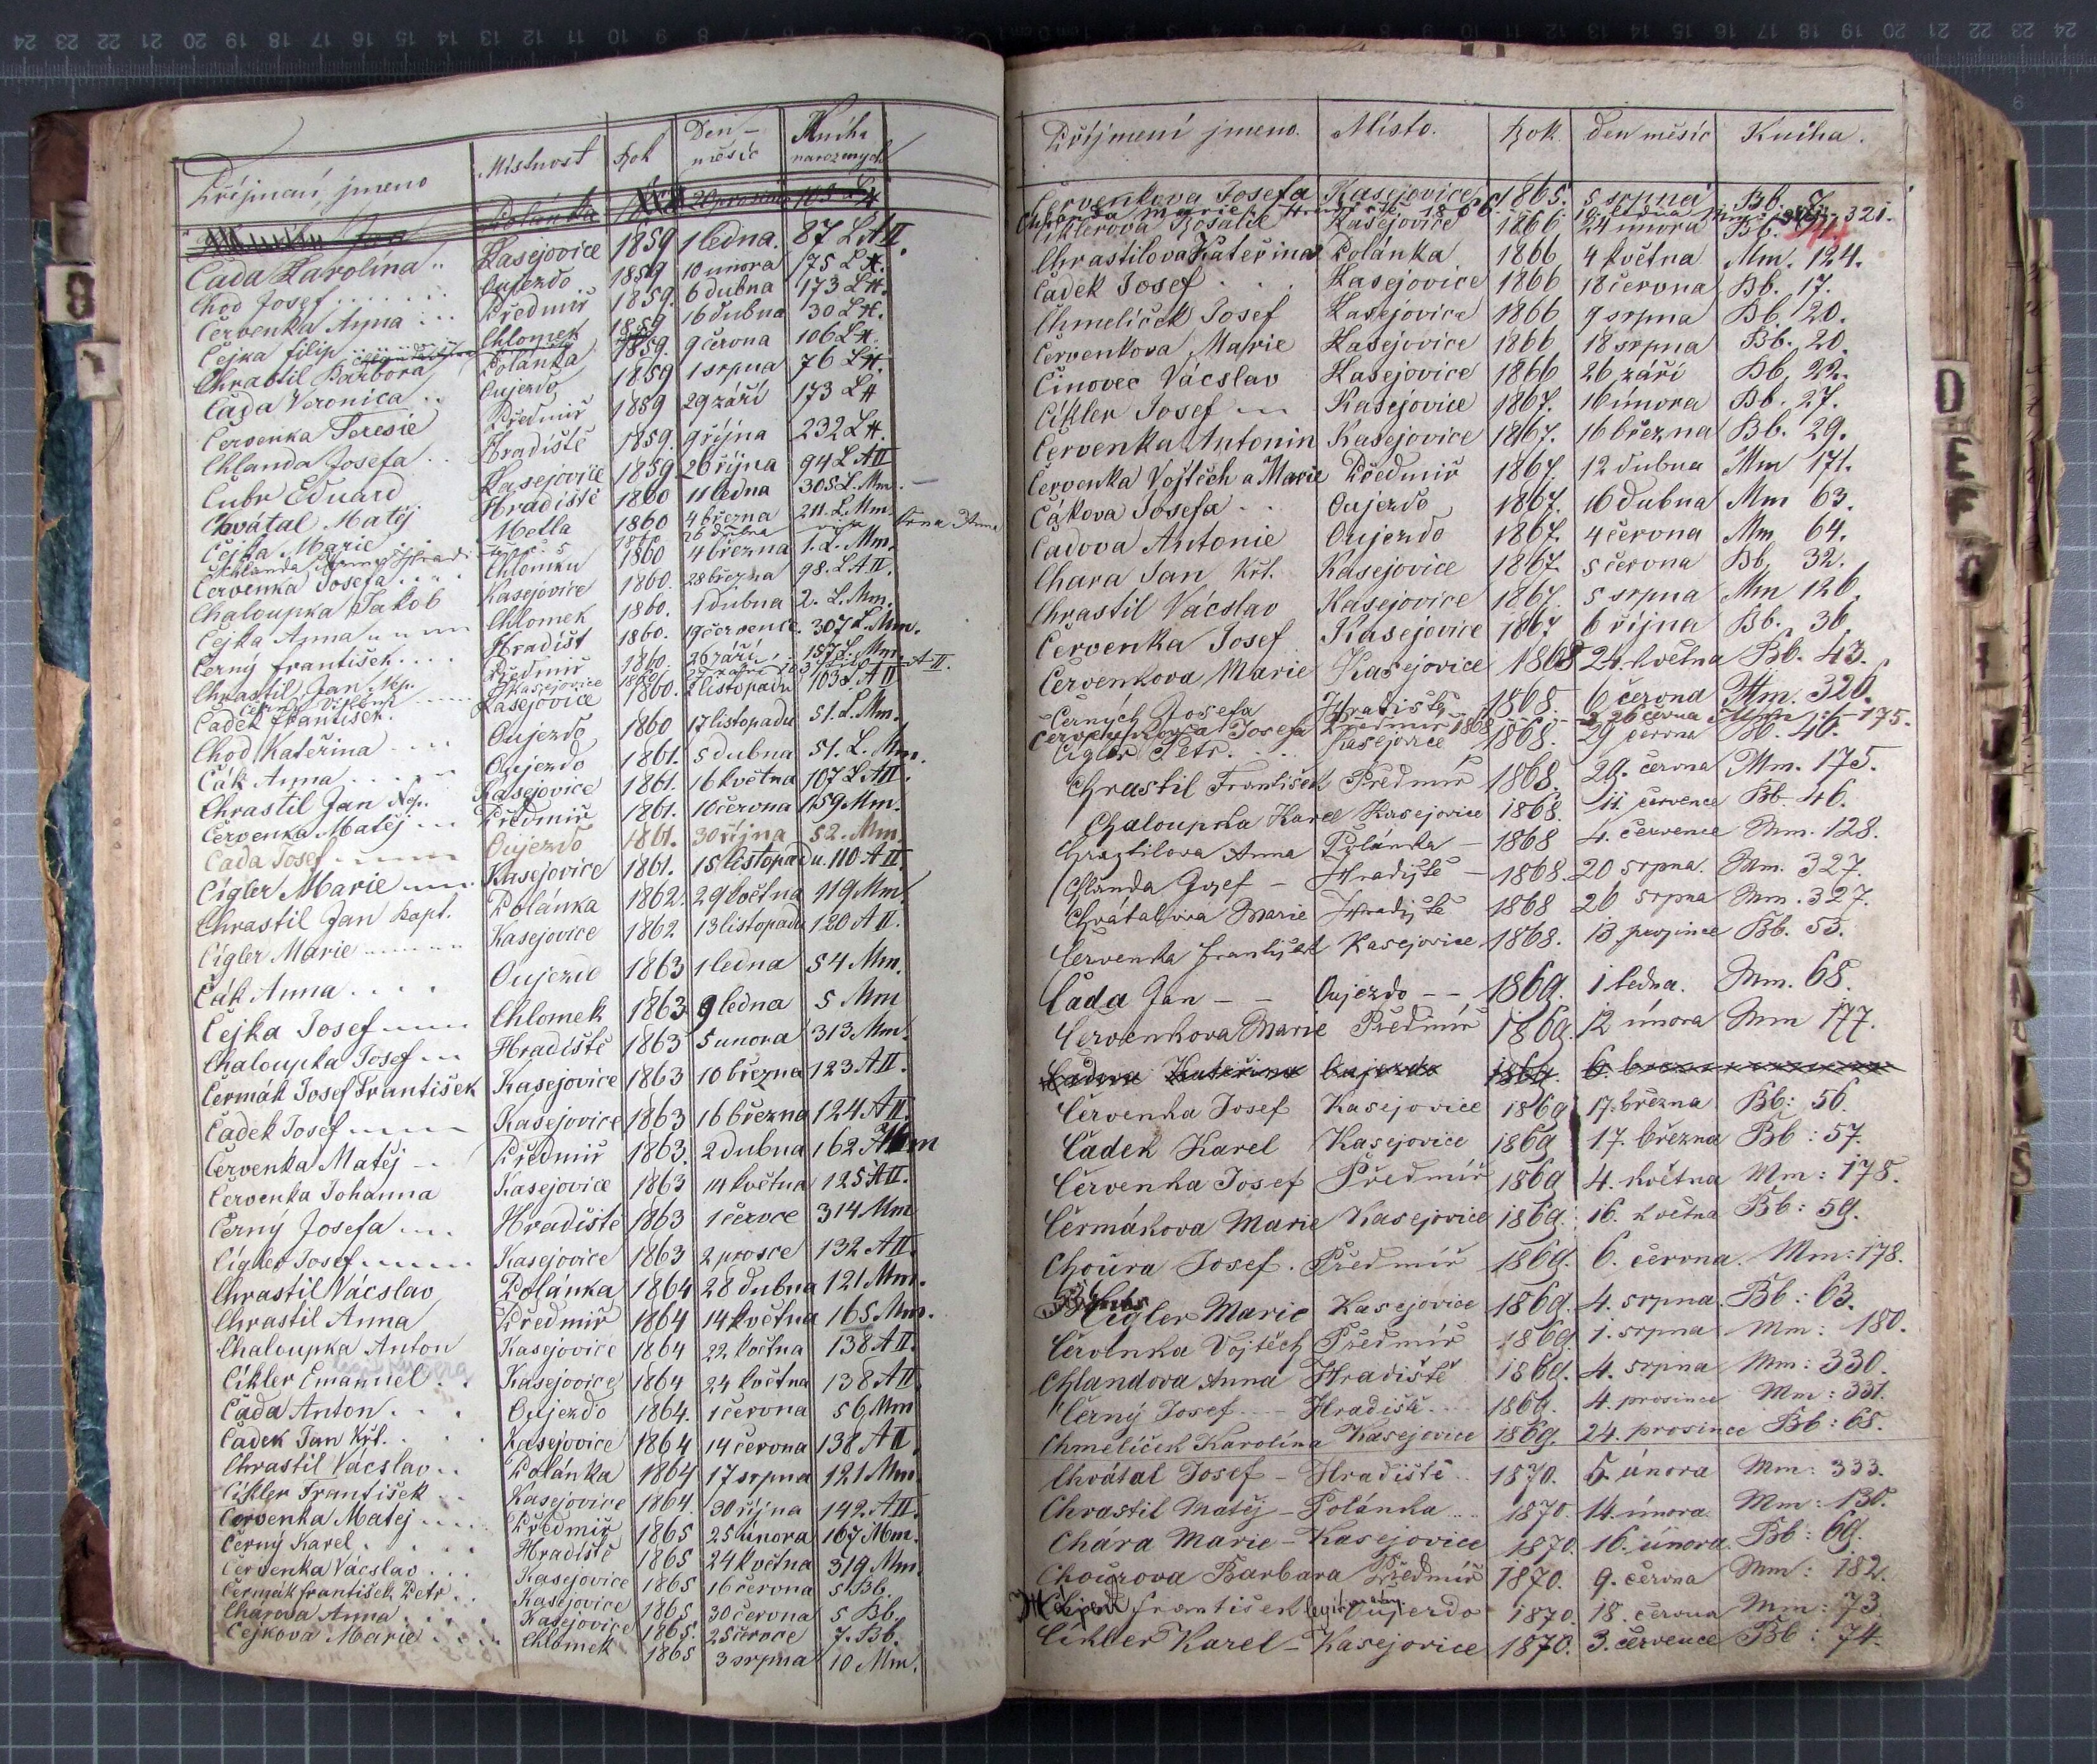 Příjmení, jmeno Místnost Rok Den - měsíc Kniha narozených
Polánka 20 prosince 103 L
Čada Karolína Kasejovice 1859 1 ledna. 87 L A II.
Chod Josef Oujezdo 1859 10 února 175 L
Červenka Anna Předmíř 1859. 6 dubna 173 L
Čejka filip Chlomek 1859 16 dubna 30 L
Chrastil Barbora Polánka 1859. 9 června 106 L
Čada Veronica Oujezdo 1859 1 srpna 76 L
Červenka Teresie Předmíř 1859 29 září 173 L
Chlanda Josefa Hradiště 1859. 9 října 232 L
Čubr Eduard Kasejovice 1859 26 října 94 L A II
Chvátal Matěj Hradiště 1860 11 ledna 305 L. Mm.
Čejka Marie Metla 1860 4 března 211. L. Mm.
Chlanda 26 dubna
Červenka Josefa Chlomku 1860 4 března 1. L. Mm.
Chaloupka Jakob Kasejovice 1860. 28 března 98. L A II.
Čejka Anna Chlomek 1860. 1 dubna 2. L. Mm.
Černý františek Hradišt 1860. 19 července. 307 L. Mm.
Chrastil Jan Nep. Předmíř 1860. 26 září 157 L. Mm.
Kasejovice 1860 A II.
Čadek františek. Kasejovice 1860. 2 listopadu 103 L. A II
Chod Kateřina Oujezdo 1860 17 listopadu 51. L. Mm.
Čák Anna Oujezdo 1861. 5 dubna 51. L. Mm.
Chrastil Jan Nep. Kasejovice 1861. 16 května 107 L A II.
Červenka Matěj Předmíř 1861. 10 června 159 Mm.
Čada Josef Oujezdo 1861. 30 října 52. Mm.
Cígler Marie Kasejovice 1861. 15 listopadu. 110 A II.
Chrastil Jan Bapt. Polánka 1862. 29 května 119 Mm.
Cígler Marie Kasejovice 1862 13 listopadu 120 A II.
Čák Anna Oujezdo 1863 1 ledna 54 Mm.
Čejka Josef Chlomek 1863 9 ledna 5 Mm
Chaloupka Josef Hradiště 1863 5 unora 313 Mm.
Čermák Josef František Kasejovice 1863 10 března 123 A II.
Čadek Josef Kasejovice 1863 16 března 124 A II.
Červenka Matěj Předmíř 1863. 2 dubna 162 Mm
Červenka Johanna Kasejovice 1863 14 května 125 A II.
Černý Josefa Hradiště 1863 1 červce 314 Mm
Cígler Josef Kasejovice 1863 2 prosce 132 A II.
Chrastil Václslav Polánka 1864 28 dubna 121 Mm.
Chrastil Anna Předmíř 1864 14 května 165 Mm.
Chaloupka Anton Kasejovice 1864 22 května 138 A II.
Cíkler Emanuel Kasejovice 1864 24 května 138 A II.
Čada Anton Oujezdo 1864. 1 června 56 Mm
Čadek Jan Křt. Kasejovice 1864 14 června 138 A II.
Chrastil Vácslav Polánka 1864 17 srpna 121 Mm
Cíkler František Kasejovice 1864. 30 října 142. A II.
Červenka Matej Předmíř 1865 25 unora 167 Mm.
Černý Karel Hradiště 1865 24 května 319 Mm
Červenka Vácslav Kasejovice 1865 16 června 5 Bb.
Čermák františek Petr Kasejovice 1865 30 června 5 Bb.
Charova Anna Kasejovice 1865. 25 červce 7. Bb.
Čejkova Marie Chlomek 1865 3 srpna 10 Mm.
Příjmení jmeno. Místo. Rok. den měsíc Kniha.
Červenkova Josefa Kasejovice 1865. 5 srpna Bb. 8.
Chlanda Marie 1866 ledna Mm. 321.
Ciklerova Rosalie Kasejovice 1866 24 února Bb.
Chrastilova Kateřina Polánka 1866 4 května Mm. 124.
Čadek Josef Kasejovice 1866 18 června Bb. 17.
Chmelíček Josef Kasejovice 1866 7 srpna Bb. 20.
Červenkova Marie Kasejovice 1866 18 srpna Bb. 20.
Činovec Vácslav Kasejovice 1866 26 září Bb. 22.
Cíkler Josef Kasejovice 1867. 16 února Bb. 27.
Červenka Antonin Kasejovice 1867. 16 března Bb. 29.
Červenka Vojtěch a Marie Předmíř 1867. 12 dubna Mm 171.
Čákova Josefa Oujezdo 1867. 16 dubna Mm 63.
Čadova Antonie Oujezdo 1867. 4 června Mm 64.
Chara Jan Křt. Kasejovice 1867. 5 června Bb. 32.
Chrastil Vácslav Kasejovice 1867. 5 srpna Mm 126.
Červenka Josef Kasejovice 1867 6 října Bb. 36
Červenkova Marie Kasejovice 1868 24. května Bb. 43.
Černých Josefa Hradiště 1868. 6 června Mm. 326.
Červenkova Josefa Předmíř 1868 26 června Mm. 175.
Cígler Petr. Kasejovice 1868. 29 června Bb. 46.
Chrastil František Předmíř 1868. 29. června Mm. 175.
Chaloupka Karel Kasejovice 1868. 11 července Bb. 46.
Chrastilova Anna Polánka - 1868 4. července Mm. 128.
Chlanda Josef - Hradiště - 1868. 20 srpna. Mm. 327.
Chvátalova Marie Hradiště 1868 26 srpna Mm. 327.
Červenka František Kasejovice 1868. 13 prosince Bb. 53.
Čada Jan - - Oujezdo - - 1869. 1 ledna. Mm. 68.
Červenkova Marie Předmíř 1869. 12 února Mm 177.
Čadova Kateřina Oujezdo 1869. 6.
Červenka Josef Kasejovice 1869 17. března Bb: 56.
Čadek Karel Kasejovice 1869 17. března Bb: 57.
Červenka Josef Předmíř 1869 4. května Mm: 178.
Čermákova Marie Kasejovice 1869. 16. května Bb: 59.
Choura Josef. Předmíř 1869. 6. června. Mm: 178.
Cígler Marie Kasejovice 1869. 4. srpna. Bb: 63.
Červenka Vojtěch Předmíř 1869. 1. srpna Mm: 180.
Chlandova Anna Hradiště 1869. 4. srpna Mm: 330.
Černý Josef Hradiště 1869. 4. prosince Mm: 331.
Chmelíček Karolína Kasejovice 1869. 24. prosince Bb: 68.
Chvátal Josef - Hradiště 1870. 5. února Mm: 333.
Chrastil Matěj - Polánka 1870. 14. února Mm: 130.
Chára Marie - Kasejovice 1870. 16. února. Bb: 69.
Chourova Barbara Předmíř 1870. 9. června Mm: 182.
František Oujezdo 1870. 18. června Mm: 73.
Cíkler Karel - Kasejovice 1870. 3. července Bb: 74.
D
E
F